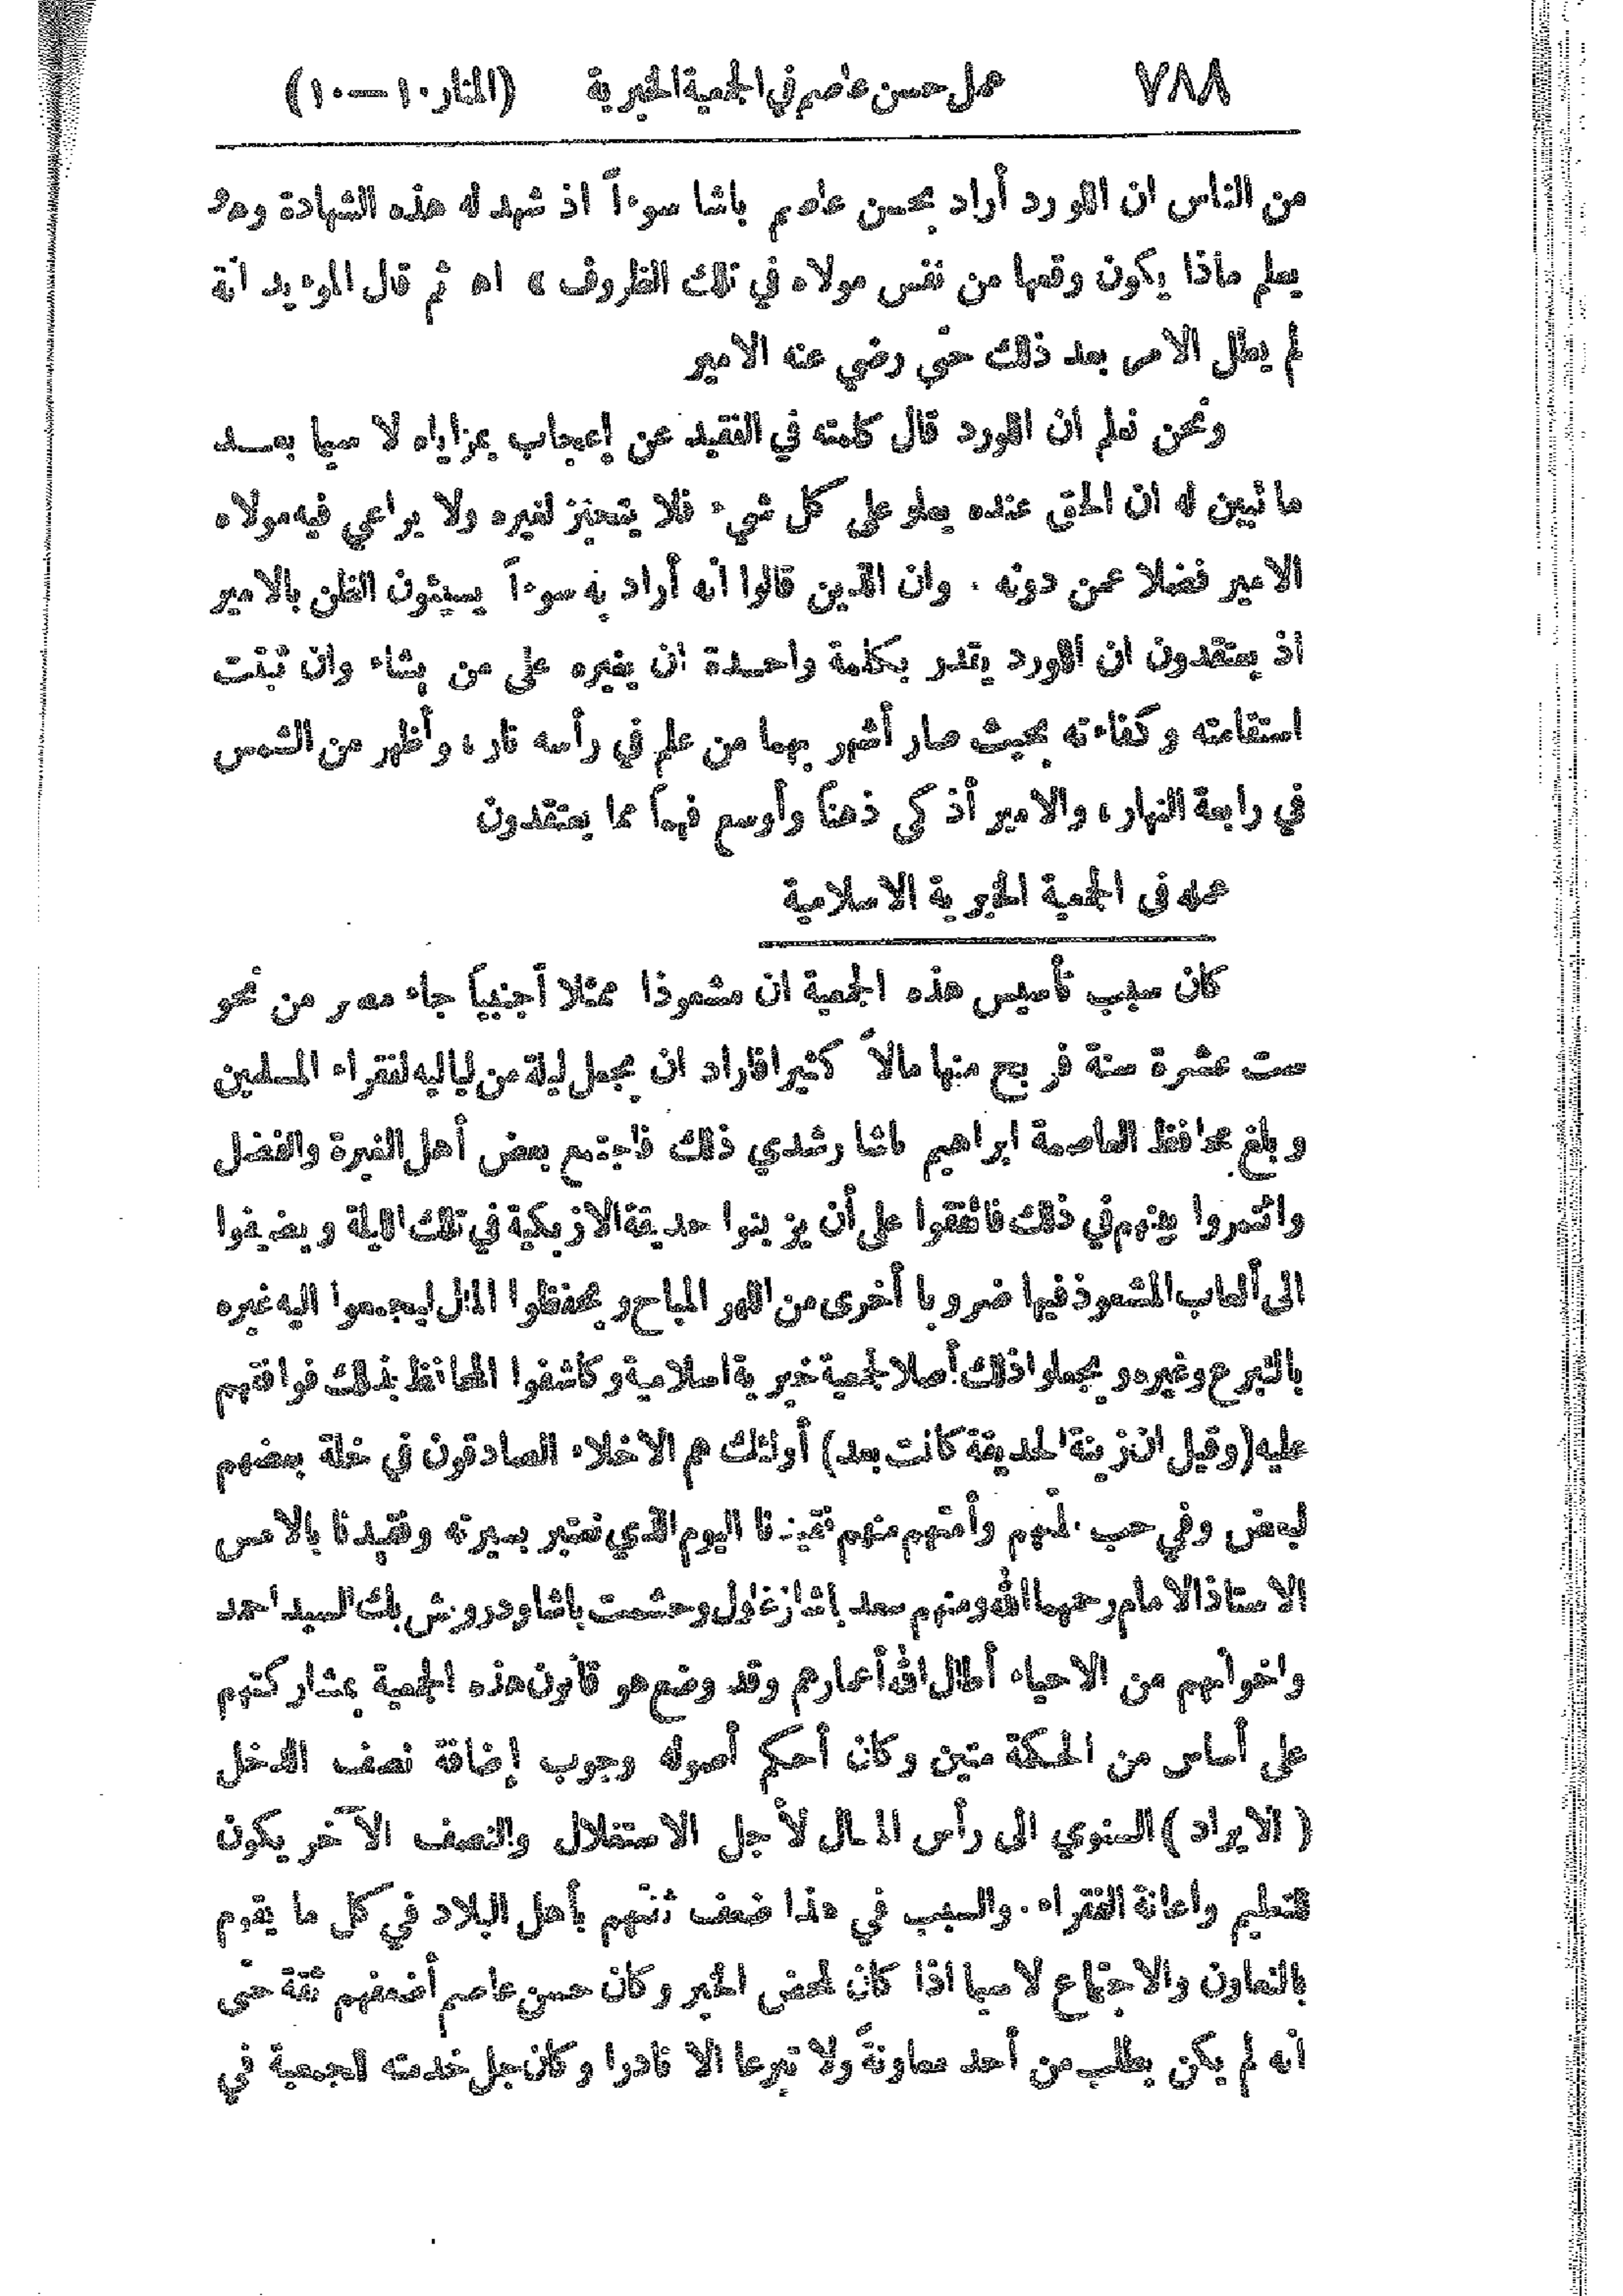 ٧٨٨ عمل حسن عاصم في الجمعية الخيرية (المنار ١٠ — ١٠)
من الناس ان اللورد أراد بحسن عاصم باشا سوءاً اذ شهد له هذه الشهادة وهو
يعلم ماذا يكون وقعها من نفس مولاه في تلك الظروف » اه ثم قال المؤيد انه
لم يطل الامر بعد ذلك حتى رضي عنه الامير
ونحن نعلم أن اللورد قال كلمته في الفقيد عن إعجاب بمزاياه لا سيما بعد
ما تبين له ان الحق عنده يعلو على كل شيء فلا يتحيز لغيره ولا يراعي فيه مولاه
الامير فضلا عمن دونه . وان الذين قالوا انه أراد به سوءاً يسيئون الظن بالامير
اذ يعتقدون ان اللورد يقدر بكلمة واحدة ان يغيره على من يشاء وان ثبتت
استقامته وكفاءته بحيث صار أشهر بهما من علم في رأسه نار، وأظهر من الشمس
في رابعة النهار، والامير أذكى ذهناً وأوسع فهماً مما يعتقدون
عمله في الجمعية الخيرية الاسلامية
كان سبب تأسيس هذه الجمعية ان مشعوذا ممثلا أجنبياً جاء مصر من نحو
ست عشرة سنة فربح منها مالاً كثيرا فاراد ان يجعل ليلة من لياليه لفقراء المسلمين
وبلغ محافظ العاصمة ابراهيم باشا رشدي ذلك فاجتمع بعض أهل الغيرة والفضل
وائتمروا بينهم في ذلك فاتفقوا على أن يزينوا حديقة الازبكية في تلك الليلة ويضيفوا
الى ألعاب المشعوذ فيها ضروبا أخرى من اللهو المباح ويحفظوا المال ليجمعوا اليه غيره
بالتبرع وغيره ويجعلوا ذلك أصلا لجمعية خيرية اسلامية وكاشفوا المحافظ بذلك فوافقهم
عليه (وقيل ان زينة الحديقة كانت بعد) أولئك هم الاخلاء الصادقون في خلة بعضهم
لبعض وفي حب ملتهم وأمتهم منهم فقيدنا اليوم الذي نعتبر بسيرته وفقيدنا بالامس
الاستاذ الامام رحمهما الله ومنهم سعد باشا زغلول وحشمت باشا ودرويش بك السيد احمد
واخوانهم من الاحياء أطال الله أعمارهم وقد وضع هو قانون هذه الجمعية بمشاركتهم
على أساس من الحكمة متين وكان أحكم أصوله وجوب إضافة نصف الدخل
( الايراد ) السنوي الى رأس المال لأجل الاستغلال والنصف الآخر يكون
للتعليم واعانة الفقراء . والسبب في هذا ضعف ثقتهم بأهل البلاد في كل ما يقوم
بالتعاون والاجتماع لا سيما اذا كان لمحض الخير وكان حسن عاصم أضعفهم ثقة حتى
انه لم يكن يطلب من أحد معاونةً ولا تبرعا الا نادرا وكان جل خدمته للجمعية في